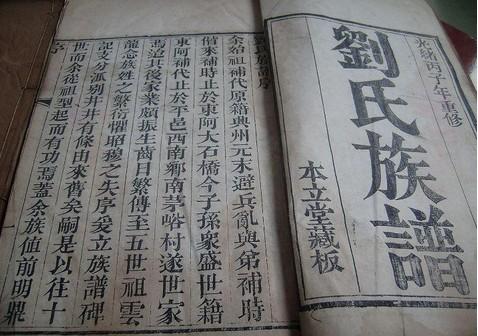 光緒丙子年重修
劉氏族譜
本立堂藏板
氏族譜序
余始祖補代原籍興州元末避兵亂與弟補時
偕來補時止於東阿大石橋今子孫衆盛世籍
東阿補代止於平邑西南鄉南峪村遂世家
焉迨其後家業頗振生齒日繁傳至五世祖雲
龍念族姓之繁衍懼昭穆之失序爰立族譜碑
記支分派别井井有條由來舊矣嗣是以往十
世而余從祖型起而有功焉蓋余族值前明鼎
序